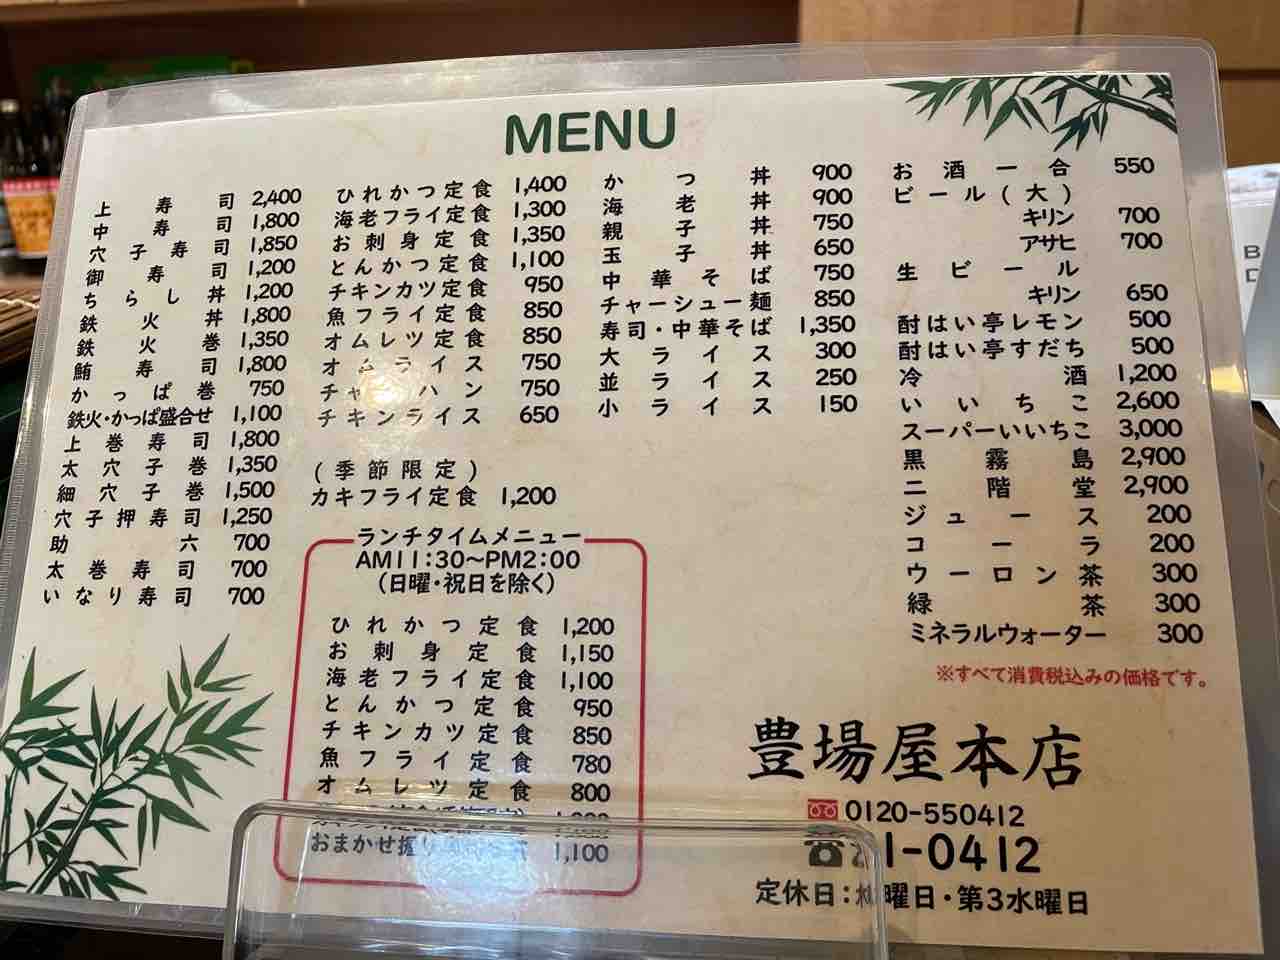 MENU
上寿司 2,400
中寿司 1,800
穴子寿司 1,850
御寿司 1,200
ちらし丼 1,200
鉄火丼 1,800
鉄火巻 1,350
鮪寿司 1,800
かっぱ巻 750
鉄火・かっぱ盛合せ 1,100
上巻寿司 1,800
太穴子巻 1,350
細穴子巻 1,500
穴子押寿司 1,250
助六 700
太巻寿司 700
いなり寿司 700
ひれかつ定食 1,400
海老フライ定食 1,300
お刺身定食 1,350
とんかつ定食 1,100
チキンカツ定食 950
魚フライ定食 850
オムレツ定食 850
オムライス 750
チャーハン 750
チキンライス 650
(季節限定)
カキフライ定食 1,200
ランチタイムメニュー
AM11:30〜PM2:00
(日曜・祝日を除く)
ひれかつ定食 1,200
お刺身定食 1,150
海老フライ定食 1,100
とんかつ定食 950
チキンカツ定食 850
魚フライ定食 780
オムレツ定食 800
おまかせ握り 1,100
かつ丼 900
海老丼 900
親子丼 750
玉子丼 650
中華そば 750
チャーシュー麺 850
寿司・中華そば 1,350
大ライス 300
並ライス 250
小ライス 150
お酒一合 550
ビール(大)
キリン 700
アサヒ 700
生ビール
キリン 650
酎はい亭レモン 500
酎はい亭すだち 500
冷酒 1,200
いいちこ 2,600
スーパーいいちこ 3,000
黒霧島 2,900
二階堂 2,900
ジュース 200
コーラ 200
ウーロン茶 300
緑茶 300
ミネラルウォーター 300
※すべて消費税込みの価格です。
豊場屋本店
0120-550412
1-0412
定休日:曜日・第3水曜日